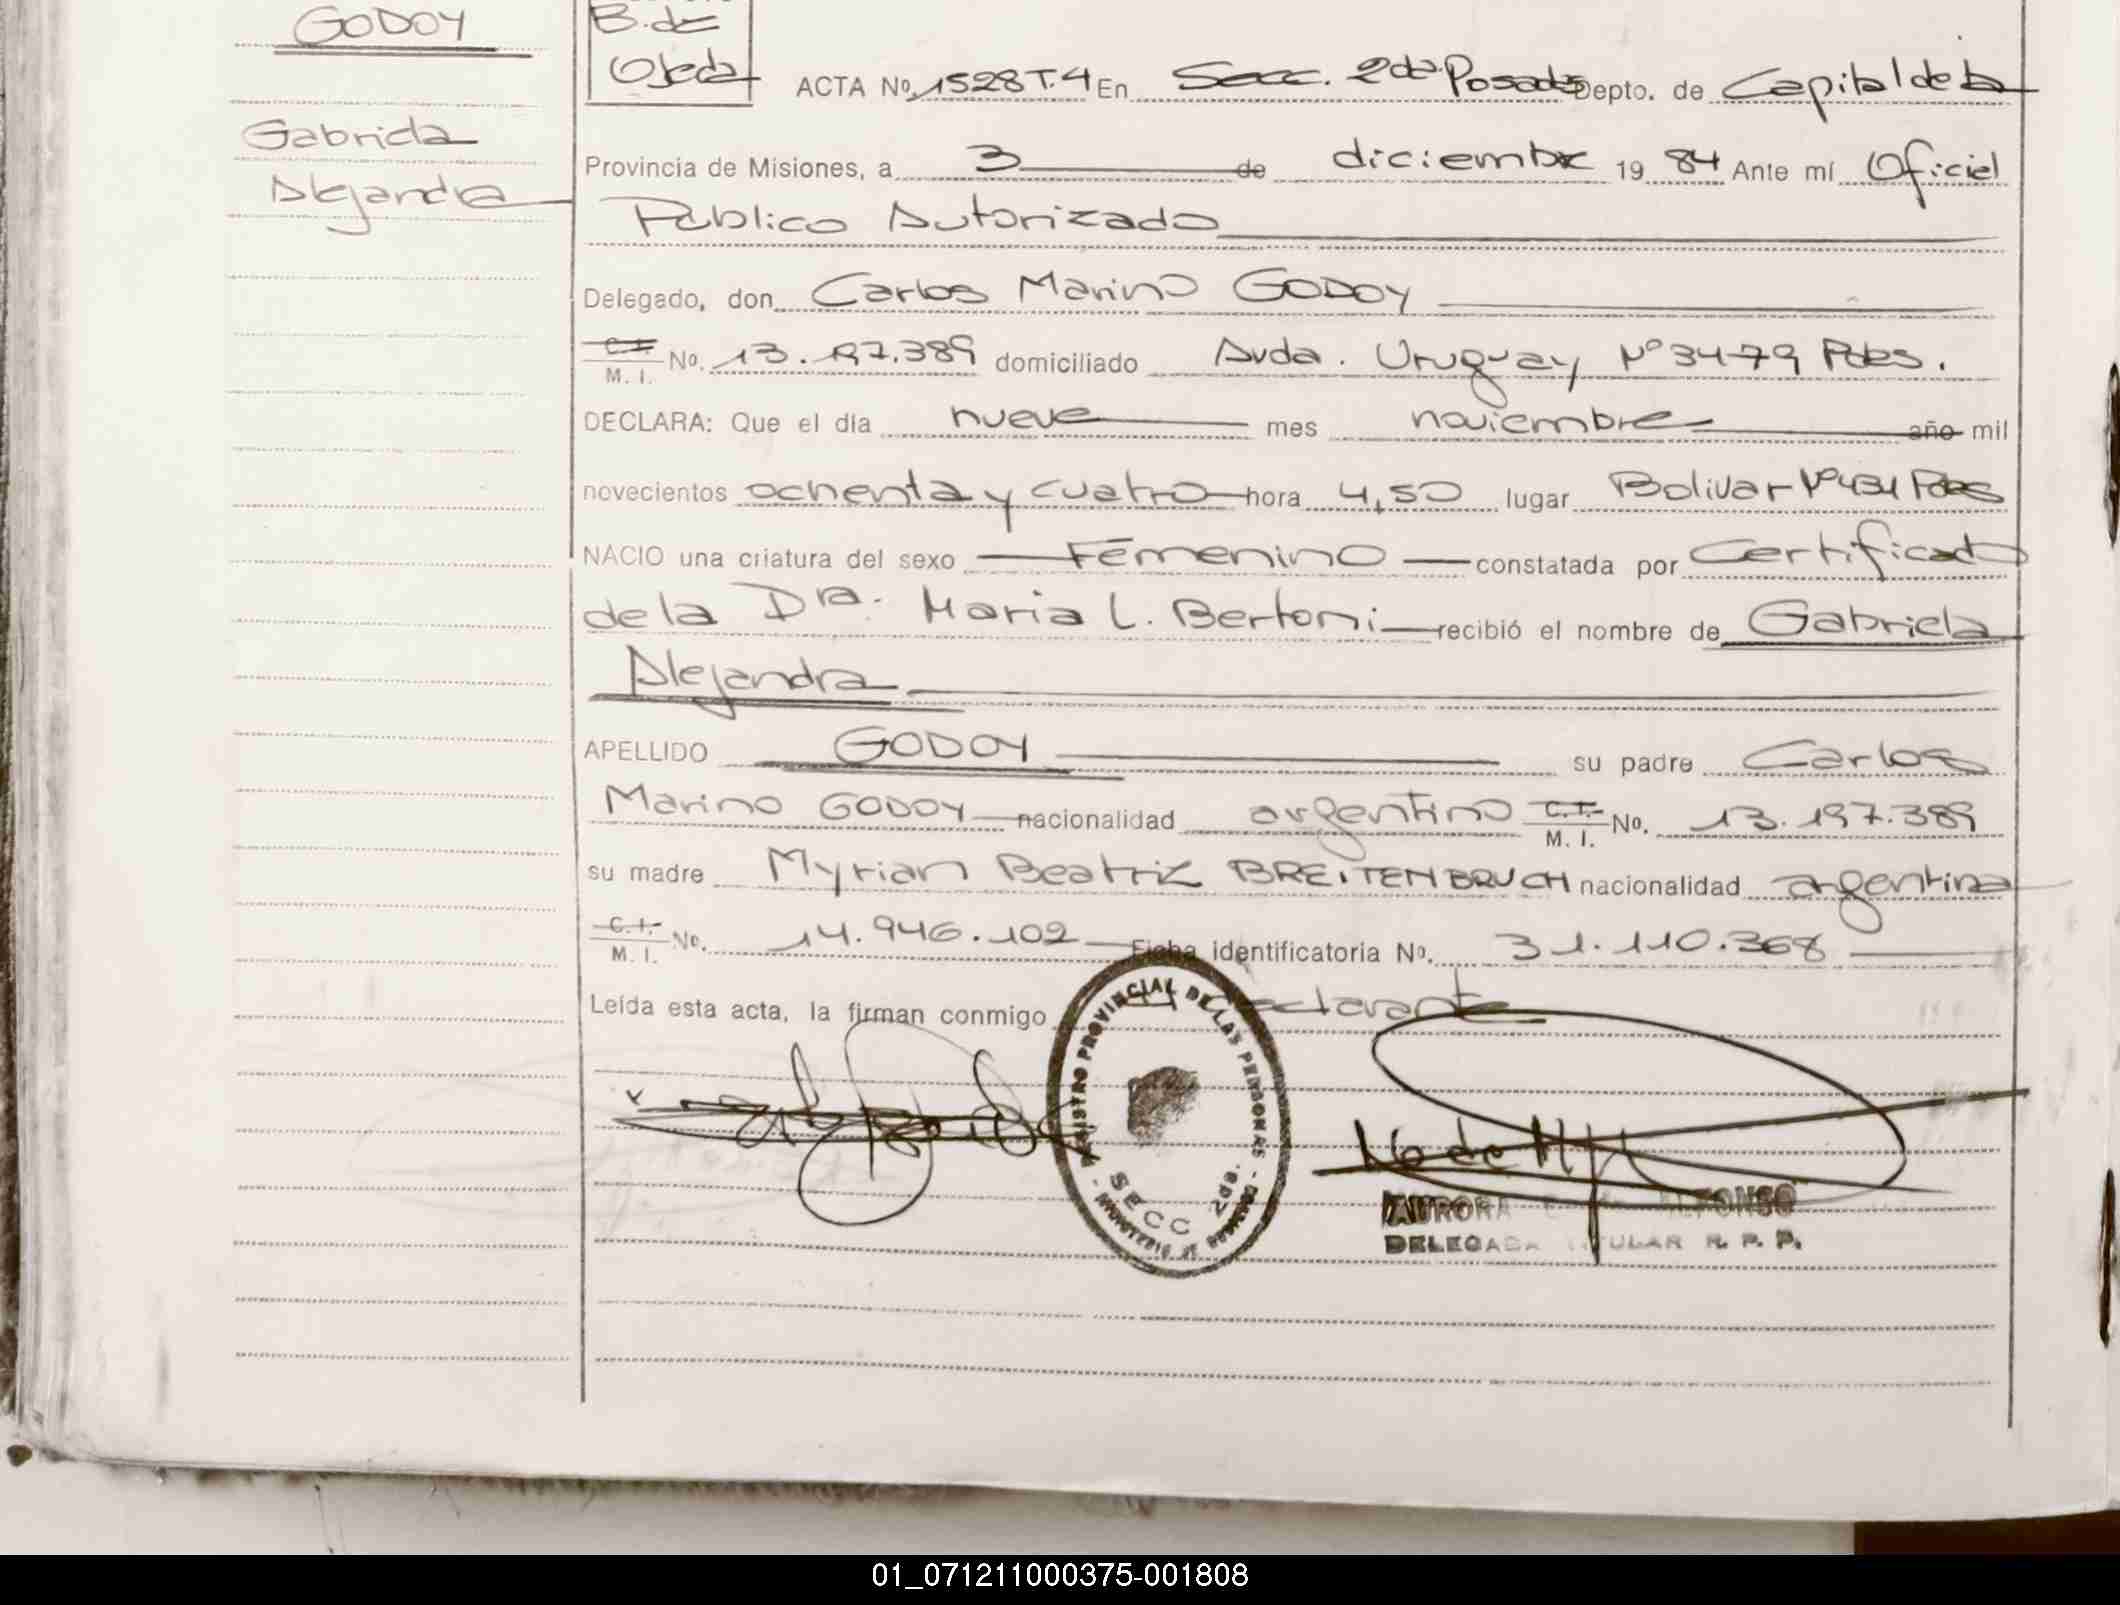 GODOY
Gabriela
Alejandra
B. de
Ojeda
ACTA Nº 1528 T.4 En Secc. 2da Posadas Depto. de Capital de la
Provincia de Misiones, a 3 de diciembre 19 84 Ante mí Oficial
Publico Autorizado
Delegado, don Carlos Marino GODOY
C.I. M. I. Nº. 13.197.389 domiciliado Avda. Uruguay Nº 3479 Pdas.
DECLARA: Que el día nueve mes noviembre año mil
novecientos ochenta y cuatro hora 4,50 lugar Bolivar Nº 431 Pdas
NACIO una criatura del sexo Femenino constatada por Certificado
de la Dra. Maria L. Bertoni recibió el nombre de Gabriela
Alejandra
APELLIDO GODOY su padre Carlos
Marino GODOY nacionalidad argentino C.I. M. I. Nº. 13.197.389
su madre Myrian Beatriz BREITENBRUCH nacionalidad argentina
C.I. M. I. Nº. 14.946.102 Ficha identificatoria Nº. 31.110.368
Leída esta acta, la firman conmigo el declarante
REGISTRO PROVINCIAL DE LAS PERSONAS
SECC 2da
MINISTERIO DE GOBIERNO
AURORA ALFONSO
DELEGADA TITULAR R. P. P.
01_071211000375-001808